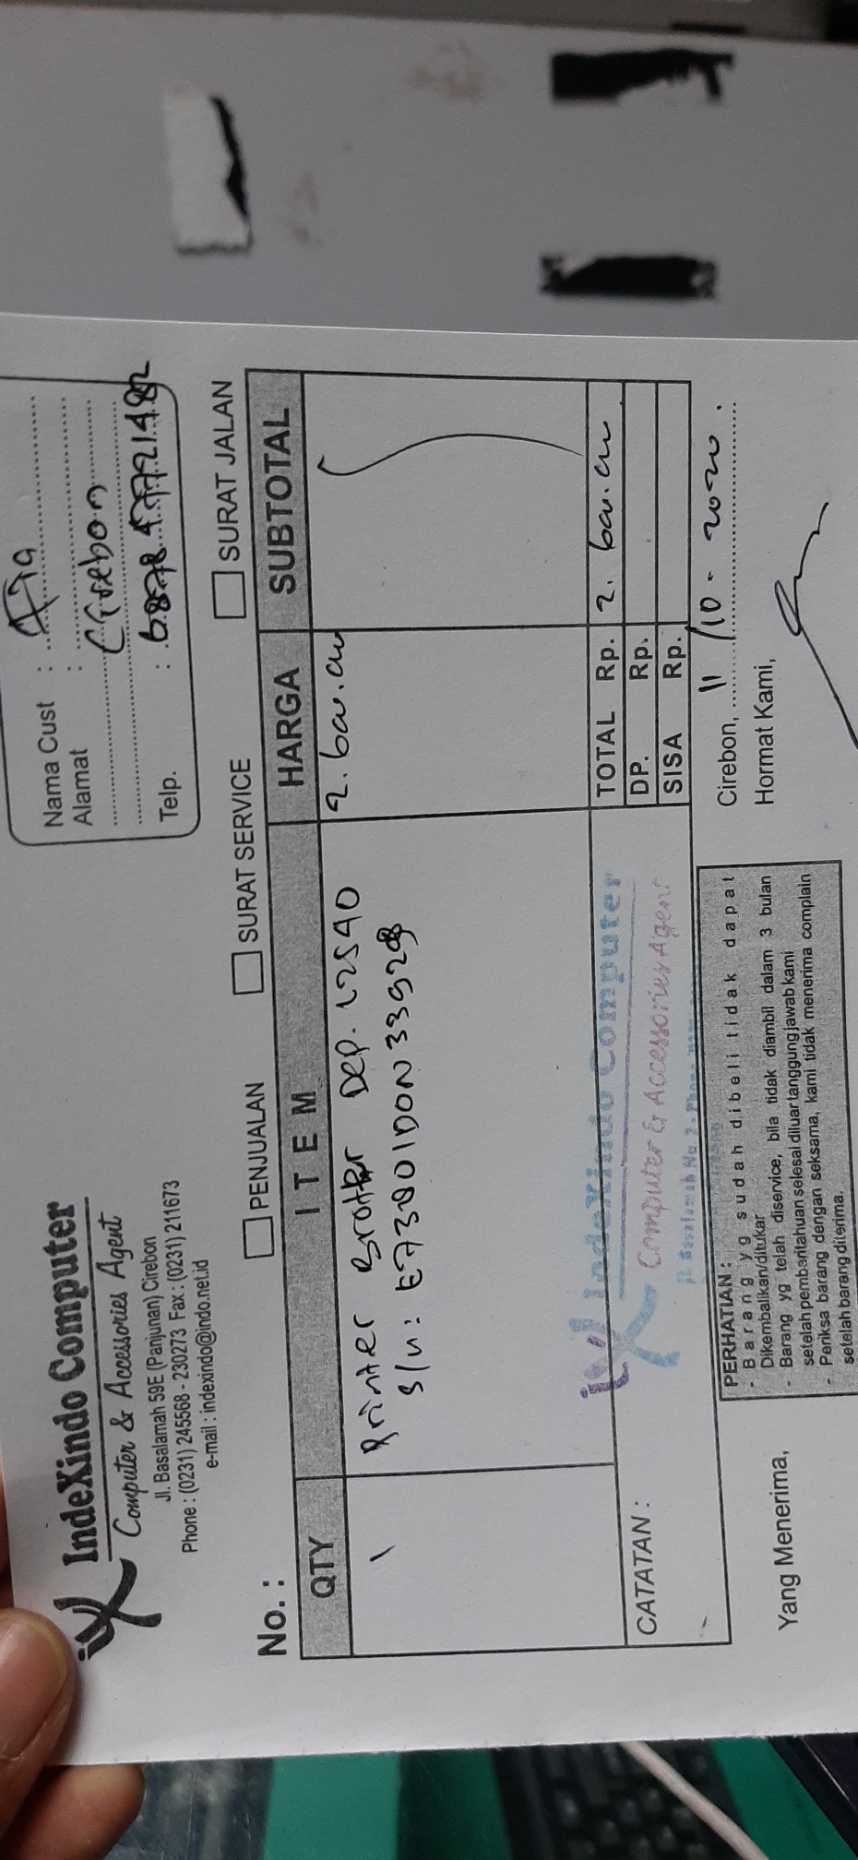 IndeXindo Computer
Computer & Accessories Agent
Jl. Basalamah 59E (Panjunan) Cirebon
Phone : (0231) 245568 - 230273 Fax : (0231) 211673
e-mail : indexindo@indo.net.id
Nama Cust :
Alamat :
Cirebon
Telp. :
No. :
PENJUALAN SURAT SERVICE SURAT JALAN
QTY ITEM HARGA SUBTOTAL
1 Printer Brother DCP. L2540
S/N:
TOTAL Rp.
DP. Rp.
SISA Rp.
CATATAN :
IndeXindo Computer
Computer & Accessories Agent
Cirebon, 11/10 - 2020.
Yang Menerima,
Hormat Kami,
PERHATIAN :
- Barang yg sudah dibeli tidak dapat
Dikembalikan/ditukar
- Barang yg telah diservice, bila tidak diambil dalam 3 bulan
setelah pembaritahuan selesai diluar tanggung jawab kami
- Periksa barang dengan seksama, kami tidak menerima complain
setelah barang diterima.